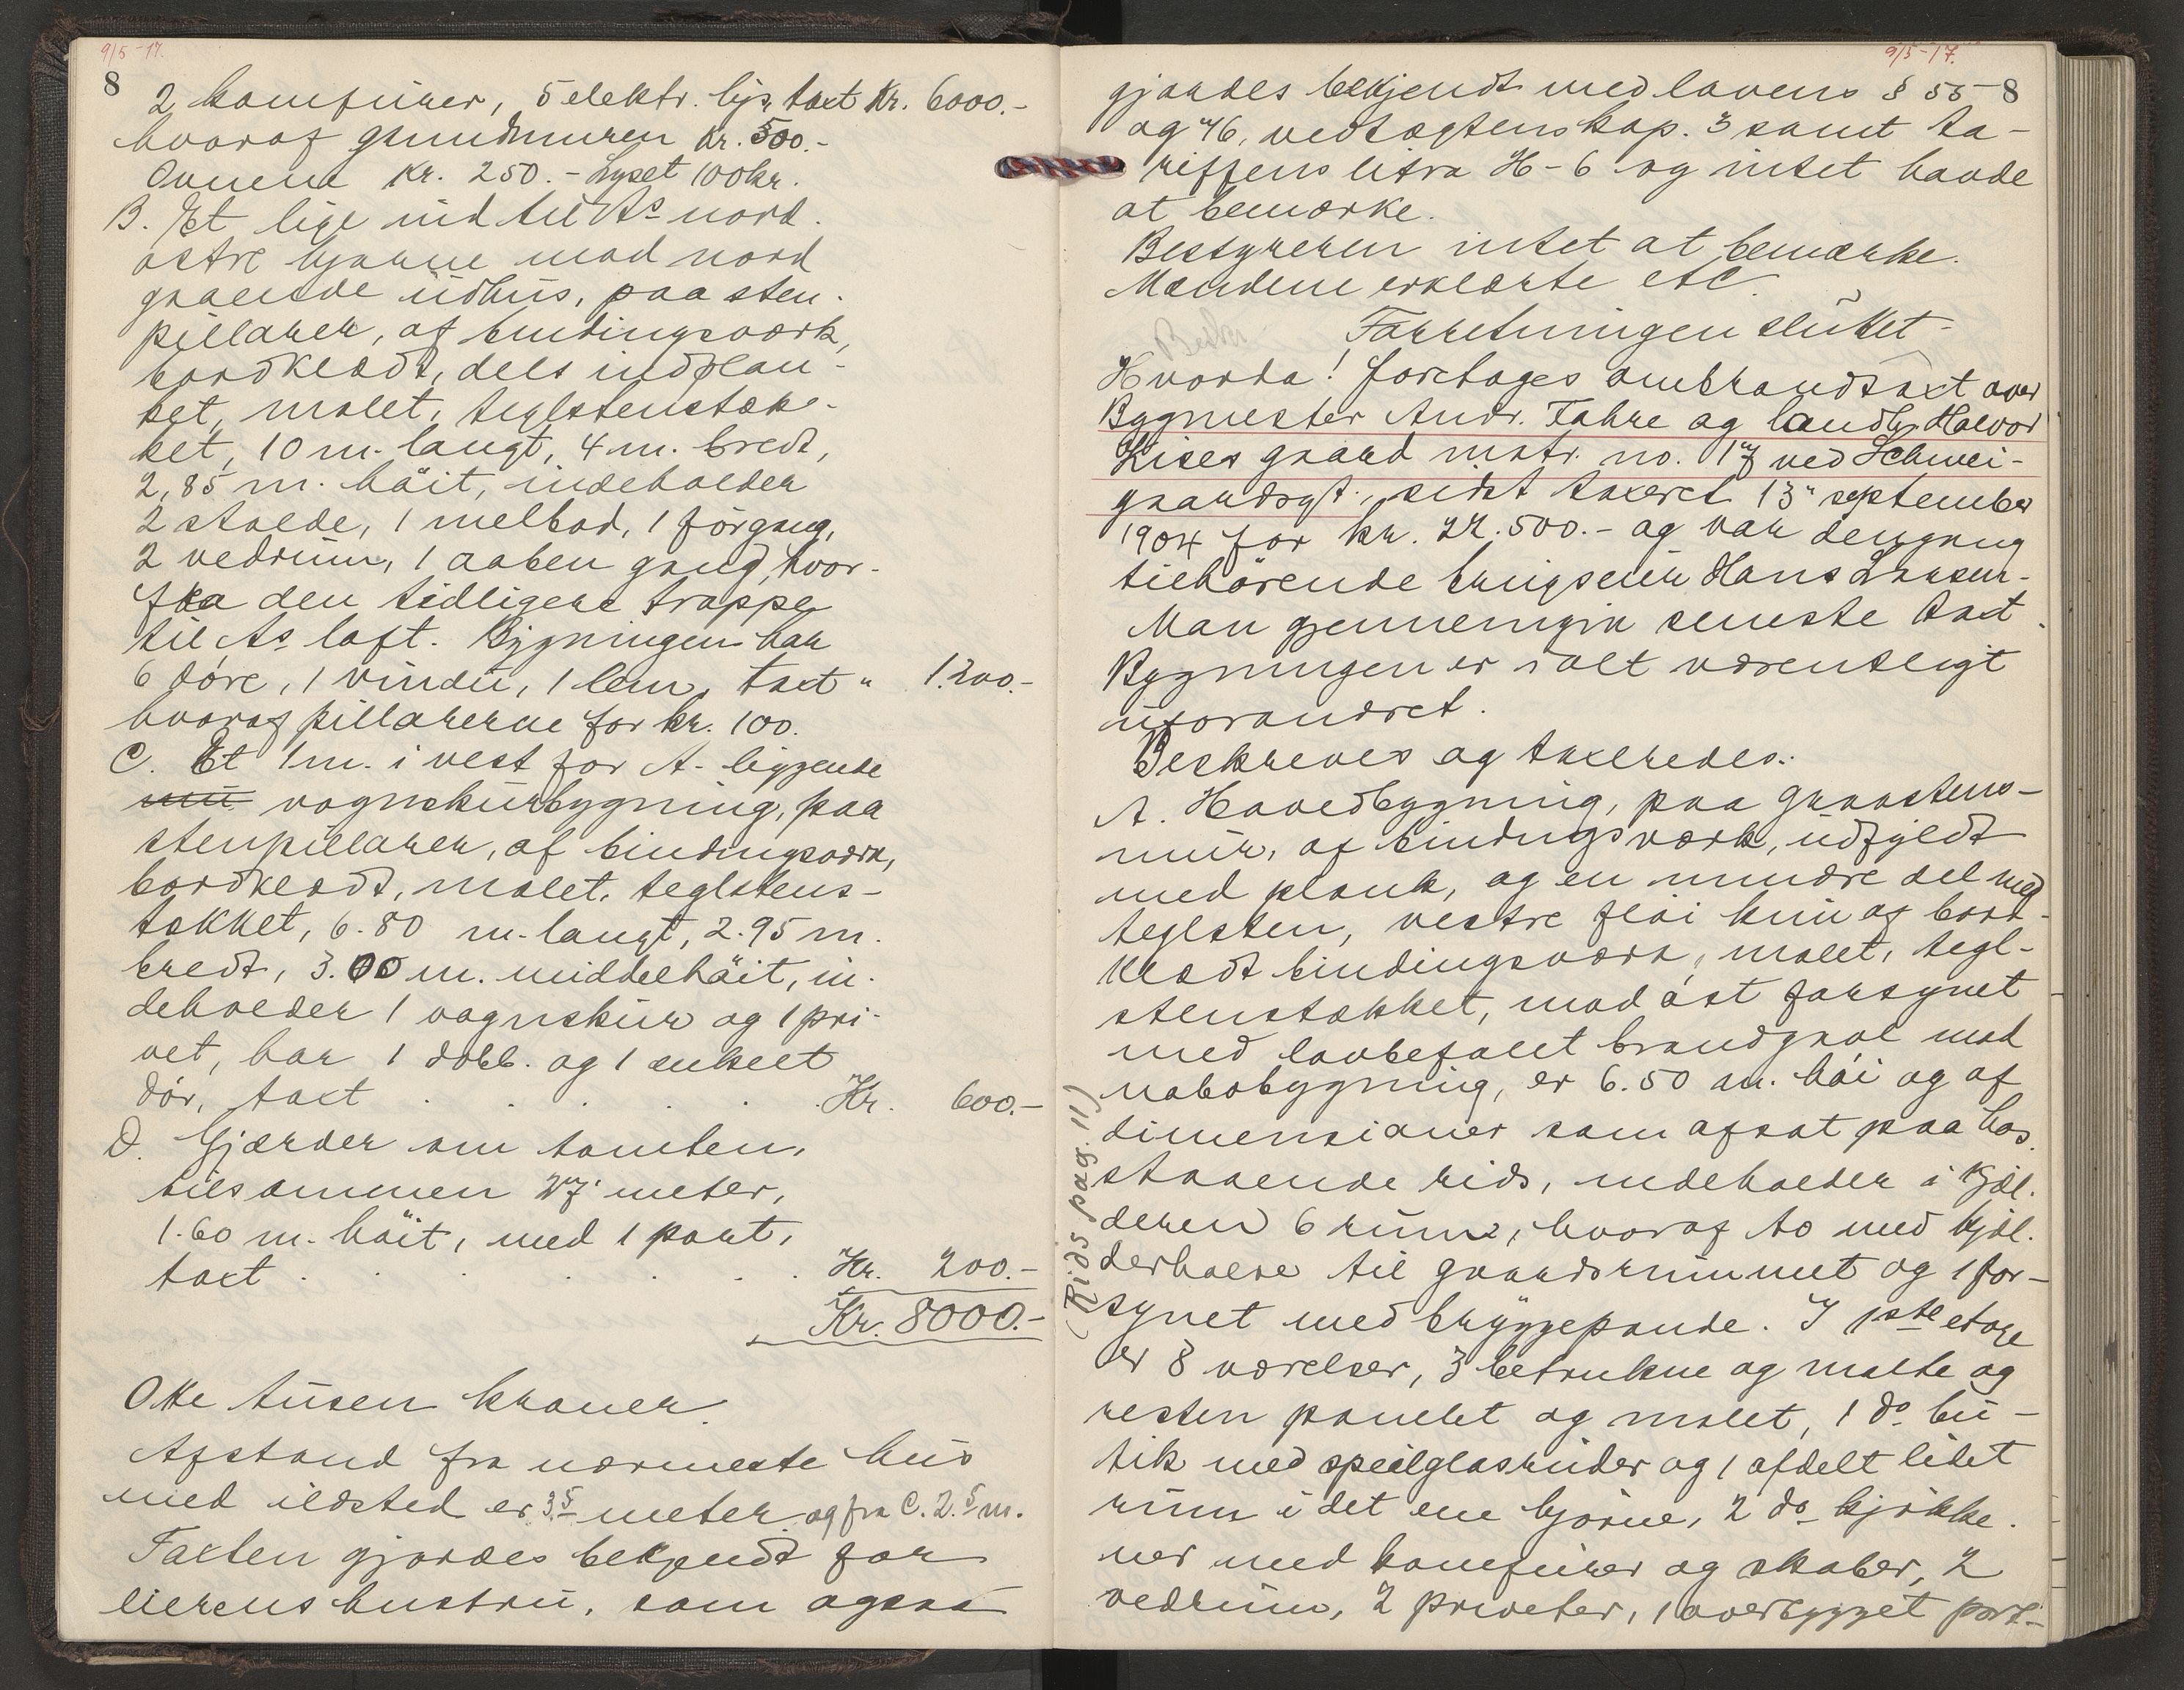 9/5-17.
8
2 komfurer, 5 elektr. lys, taxt Kr. 6000.-
hvoraf grundmuren Kr. 500.-
Ovnene Kr. 250.- Lyset 100 kr.
B. Et lige ind til As nord-
østre hjørne mod nord
gaaende udhus, paa sten-
pillarer, af bindingsværk,
bordklædt, dels indplan-
ket, malet, teglstenstæk-
ket, 10 m. langt, 4 m. bredt,
2,85 m. høit, indeholder
2 stalde, 1 melbod, 1 förgang,
2 vedrum, 1 aaben gang, hvor-
fra den tidligere trappe
til As loft. Bygningen har
6 døre, 1 vindu, 1 lem, taxt " 1.200.-
hvoraf pillarerne for kr. 100.
C. Et 1 m. i vest for A. liggende
vognskurbygning, paa
stenpillarer, af bindingsværk,
bordklædt, malet, teglstens-
tækket, 6.80 m. langt, 2.95 m.
bredt, 3.00 m. middelhøit, in-
deholder 1 vognskur og 1 pri-
vet, har 1 dobb. og 1 enkelt
dør, taxt . . . . . Kr. 600.-
D. Gjærder om tomten,
tilsammen 27 meter,
1.60 m. høit, med 1 port,
taxt . . . . . . Kr. 200.-
Kr. 8000.-
Otte tusen kroner.
Afstand fra nærmeste hus
med ildsted er 3.5 meter og fra C. 2.5 m.
Taxten gjordes bekjendt for
eierens hustru, som ogsaa
9/5-17.
8
gjordes bekjendt med lovens § 55
og 76, vedtægtens kap. 3 samt ta-
riffens litra H-6 og intet havde
at bemærke.
Bestyreren intet at bemærke.
Mændene erklærte etc.
Forretningen sluttet.
Hvorda! foretoges ombrandtaxt over
Bygmester Andr. Fahre og landh. Halvor
Lises gaard matr. no. 17 ved Schwei-
gaardsgt., sidst taxeret 13" september
1904 for kr. 22.500.- og var dengang
tilhørende brugseier Hans Larsen.
Man gjennemgik seneste taxt.
Bygningen er ialt væsentligt
uforandret.
Beskreves og taxeredes:
A. Hovedbygning, paa graastens-
mur, af bindingsværk, udfyldt
med plank, og en mindre del med
teglsten, vestre fløi kun af bord-
klædt bindingsværk, malet, tegl-
stenstækket, mod øst forsynet
med lovbefalet brandgavl mod
nabobygning, er 6.50 m. høi og af
dimensioner som afsat paa hos-
staaende rids, indeholder i kjæl-
deren 6 rum, hvoraf to med kjæl-
derhalse til gaardsrummet og 1 for-
synet med bryggepande. I 1ste etage
er 8 værelser, 3 betrukne og malte og
resten panelet og malet, 1 do bu-
tik med speilglasruder og 1 afdelt lidet
rum i det ene hjørne, 2 do kjøkke-
ner med komfurer og skaber, 2
vedrum, 2 priveter, 1 overbygget port-
(Rids pag. 11)